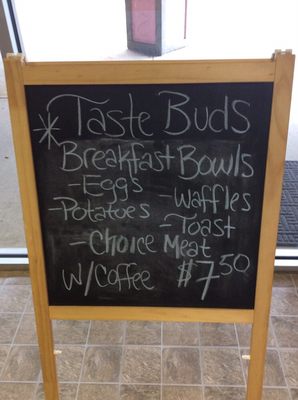 *Taste Buds
Breakfast Bowls
-Eggs
-Waffles
-Potatoes
-Toast
-Choice Meat
W/Coffee $7.50